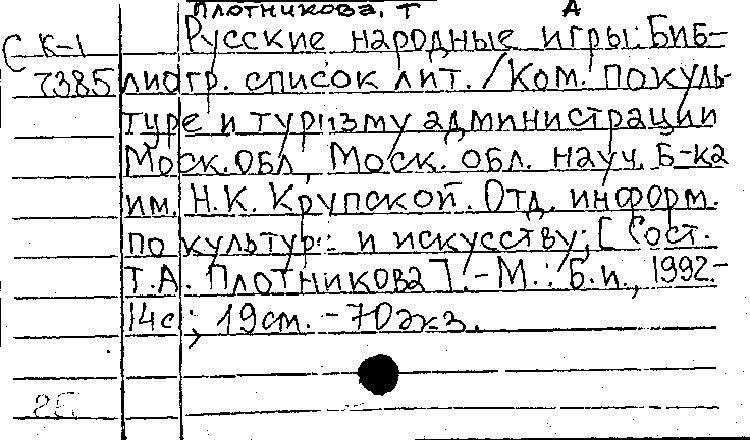 Плотникова, Т А
С К-1 Русские народные игры: Биб-
7385 лиогр. список лит. / Ком. по куль-
туре и туризму администрации
Моск. обл, Моск. обл. науч. Б-ка
им. Н.К. Крупской. Отд. информ.
по культуре и искусству; [Сост.
Т.А. Плотникова]. - М.: Б.и., 1992.-
14с; 19см. - 70экз.